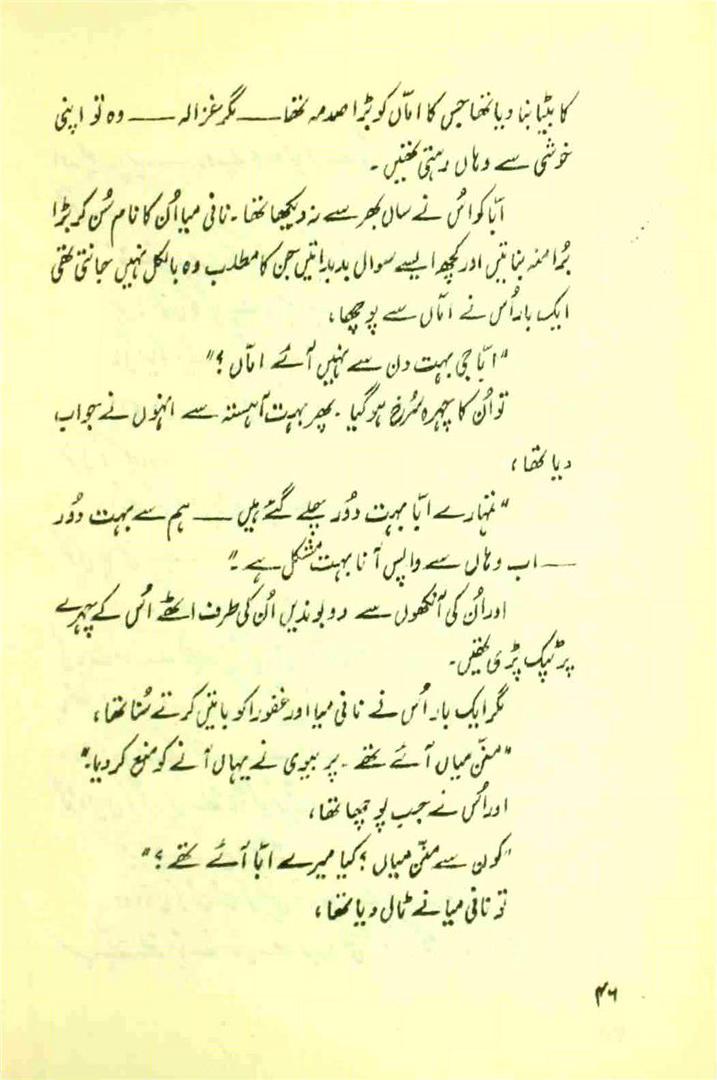 کا بیٹا بنا دیا تھا جس کا اماں کو بڑا صدمہ تھا ــــــ مگر غزالہ ــــــ وہ تو اپنی
خوشی سے وہاں رہتی تھیں ۔
ابّا کو اُس نے سال بھر سے نہ دیکھا تھا ۔ نانی میا اُن کا نام سُن کر بڑا
بُرا منہ بناتیں اور کچھ ایسے سوال بدبداتیں جن کا مطلب وہ بالکل نہیں جانتی تھی
ایک بار اُس نے اماں سے پوچھا ،
" ابّا جی بہت دن سے نہیں آئے اماں ؟ "
تو اُن کا چہرہ سُرخ ہو گیا ۔ پھر بہت آہستہ سے انہوں نے جواب
دیا تھا ،
" تمہارے ابّا بہت دُور چلے گئے ہیں ــــــ ہم سے بہت دُور
ــــــ اب وہاں سے واپس آنا بہت مشکل ہے ۔ "
اور اُن کی آنکھوں سے دو بوندیں اُن کی طرف اٹھے اُس کے چہرے
پر ٹپک پڑی تھیں ۔
مگر ایک بار اُس نے نانی میا اور غفورا کو باتیں کرتے سُنا تھا ،
" منّن میاں آئے تھے ۔ پر بیوی نے یہاں آنے کو منع کر دیا ۔ "
اور اُس نے جب پوچھا تھا ،
" کون سے منّن میاں ؟ کیا میرے ابّا آئے تھے ؟ "
تو نانی میا نے ٹال دیا تھا ،
۴۶